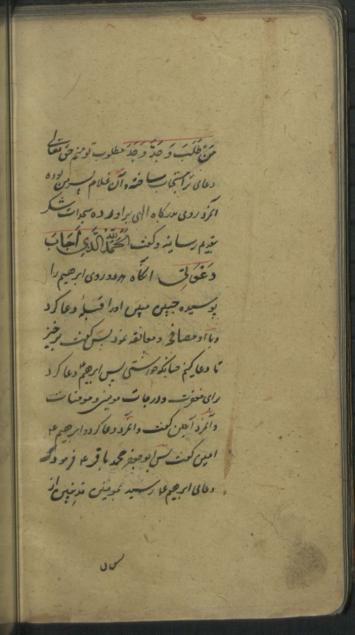 من طلب وجدّ وجد مطلوب تو منم حق تعالی
دعای ترا مستجاب ساخته و آن غلام پسر من بوده
آنمرد روی بدرگاه الهی برآورده سجدات شکر
بتقدیم رسانیده و گفت الحمد لله الذی اجاب
دعوتی آنگاه هر دو روی ابراهیم را
بوسیده جبین مبین او را قبله دعا کرد
و با او مصافحه و معانقه نمود پس گفت برخیز
تا دعا کنیم چنانکه خواستی پس ابراهیم دعا کرد
برای مغفرت و درجات مومنین و مومنات
و آنمرد آمین گفت و آنمرد دعا کرد و ابراهیم ع
آمین گفت پس ابوجعفر محمد باقر ع فرمود که
دعای ابراهیم ع رسید بمومنین مذنبین از